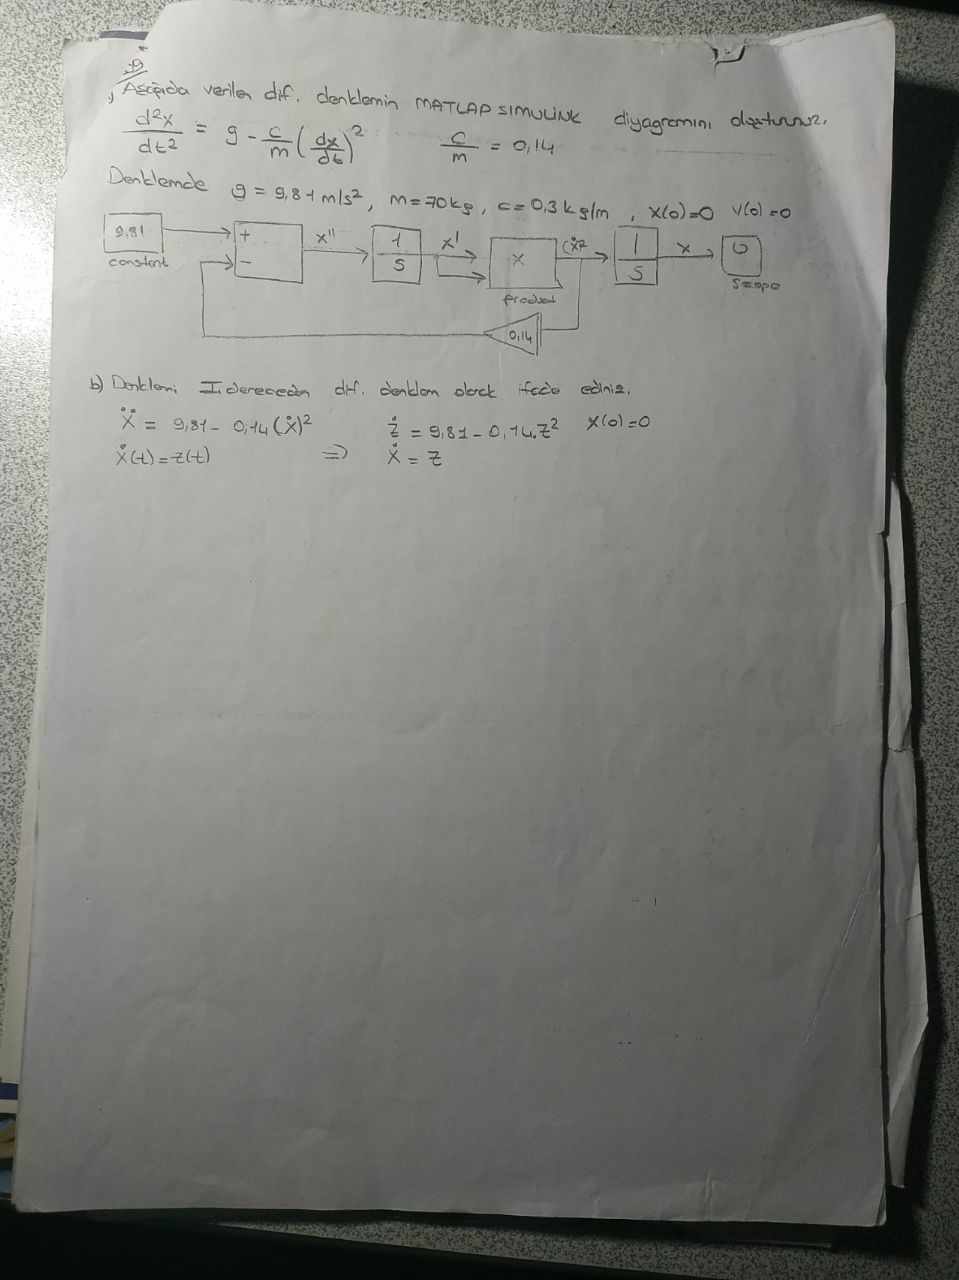 a) Aşağıda verilen dif. denklemin MATLAP SIMULINK diyagramını oluşturunuz.
d²x/dt² = g - c/m (dx/dt)² c/m = 0,14
Denklemde g = 9,81 m/s², m=70kg, c=0,3 kg/m, x(0)=0 v(0)=0
9.81 + - x'' 1/s x' x (ẋ)² 1/s x 0
constant product scope
0,14
b) Denklemi I. dereceden dif. denklem olarak ifade ediniz.
ẍ = 9,81 - 0,14(ẋ)² ż = 9,81 - 0,14.z² x(0)=0
ẋ(t) = z(t) => ẋ = z